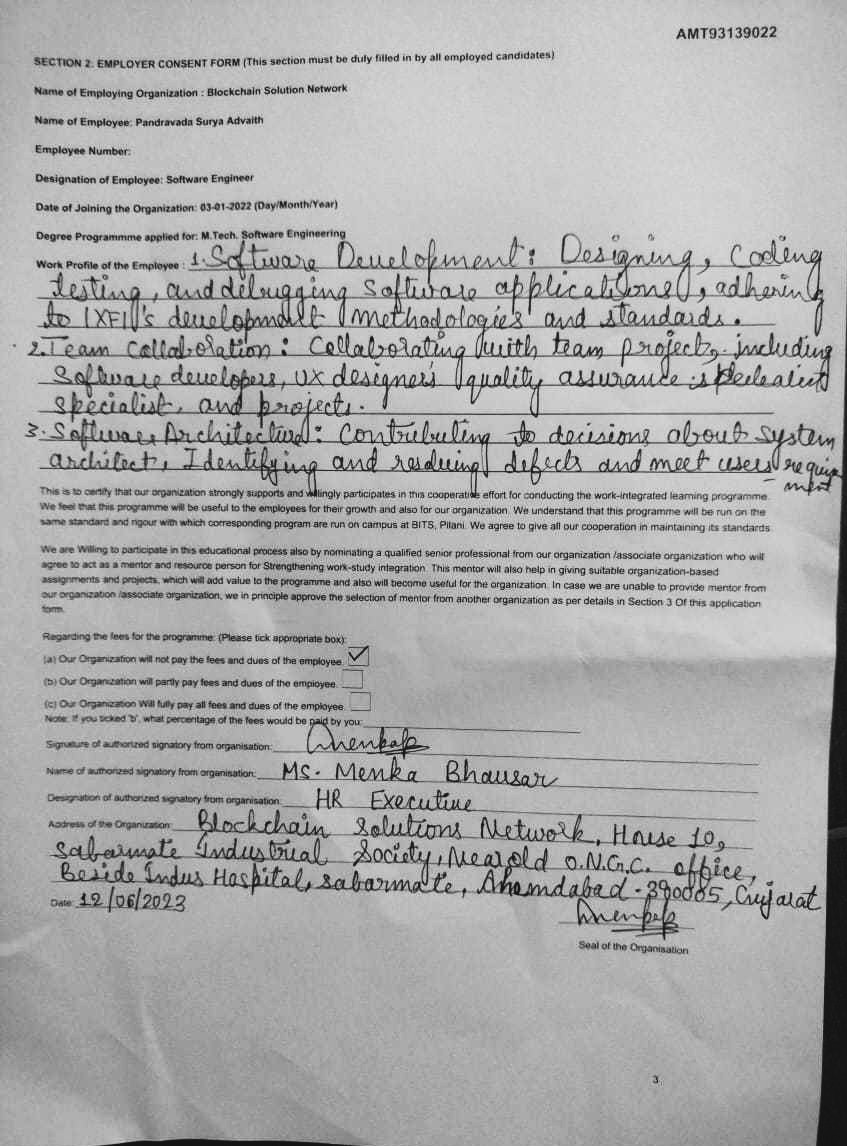 AMT93139022
SECTION 2: EMPLOYER CONSENT FORM (This section must be duly filled in by all employed candidates)
Name of Employing Organization : Blockchain Solution Network
Name of Employee: Pandravada Surya Advaith
Employee Number:
Designation of Employee: Software Engineer
Date of Joining the Organization: 03-01-2022 (Day/Month/Year)
Degree Programmme applied for: M.Tech. Software Engineering
Work Profile of the Employee : 1. Software Development: Designing, Coding
testing, and debugging Software applications, adhering
to IXFI's development methodologies and standards.
2. Team Collaboration: Collaborating with team projects, including
Software developers, UX designers quality assurance
specialist, and projects.
3. Software Architectural: Contributing to decisions about system
architect, Identifying and resolving defects and meet users requirement
This is to certify that our organization strongly supports and willingly participates in this cooperative effort for conducting the work-integrated learning programme.
We feel that this programme will be useful to the employees for their growth and also for our organization. We understand that this programme will be run on the
same standard and rigour with which corresponding program are run on campus at BITS, Pilani. We agree to give all our cooperation in maintaining its standards.
We are Willing to participate in this educational process also by nominating a qualified senior professional from our organization /associate organization who will
agree to act as a mentor and resource person for Strengthening work-study integration. This mentor will also help in giving suitable organization-based
assignments and projects, which will add value to the programme and also will become useful for the organization. In case we are unable to provide mentor from
our organization /associate organization, we in principle approve the selection of mentor from another organization as per details in Section 3 Of this application
form.
Regarding the fees for the programme: (Please tick appropriate box):
(a) Our Organization will not pay the fees and dues of the employee.
(b) Our Organization will partly pay fees and dues of the employee.
(c) Our Organization Will fully pay all fees and dues of the employee.
Note: If you ticked 'b', what percentage of the fees would be paid by you:
Signature of authorized signatory from organisation:
Name of authorized signatory from organisation: MS. Menka Bhausar
Designation of authorized signatory from organisation: HR Executive
Address of the Organization: Blockchain Solutions Network, House 10,
Sabarmate Industrial Society, Near old O.N.G.C. office,
Beside Indus Hospital, Sabarmate, Ahamdabad - 390005, Gujarat
Date: 12/06/2023
Seal of the Organisation
3